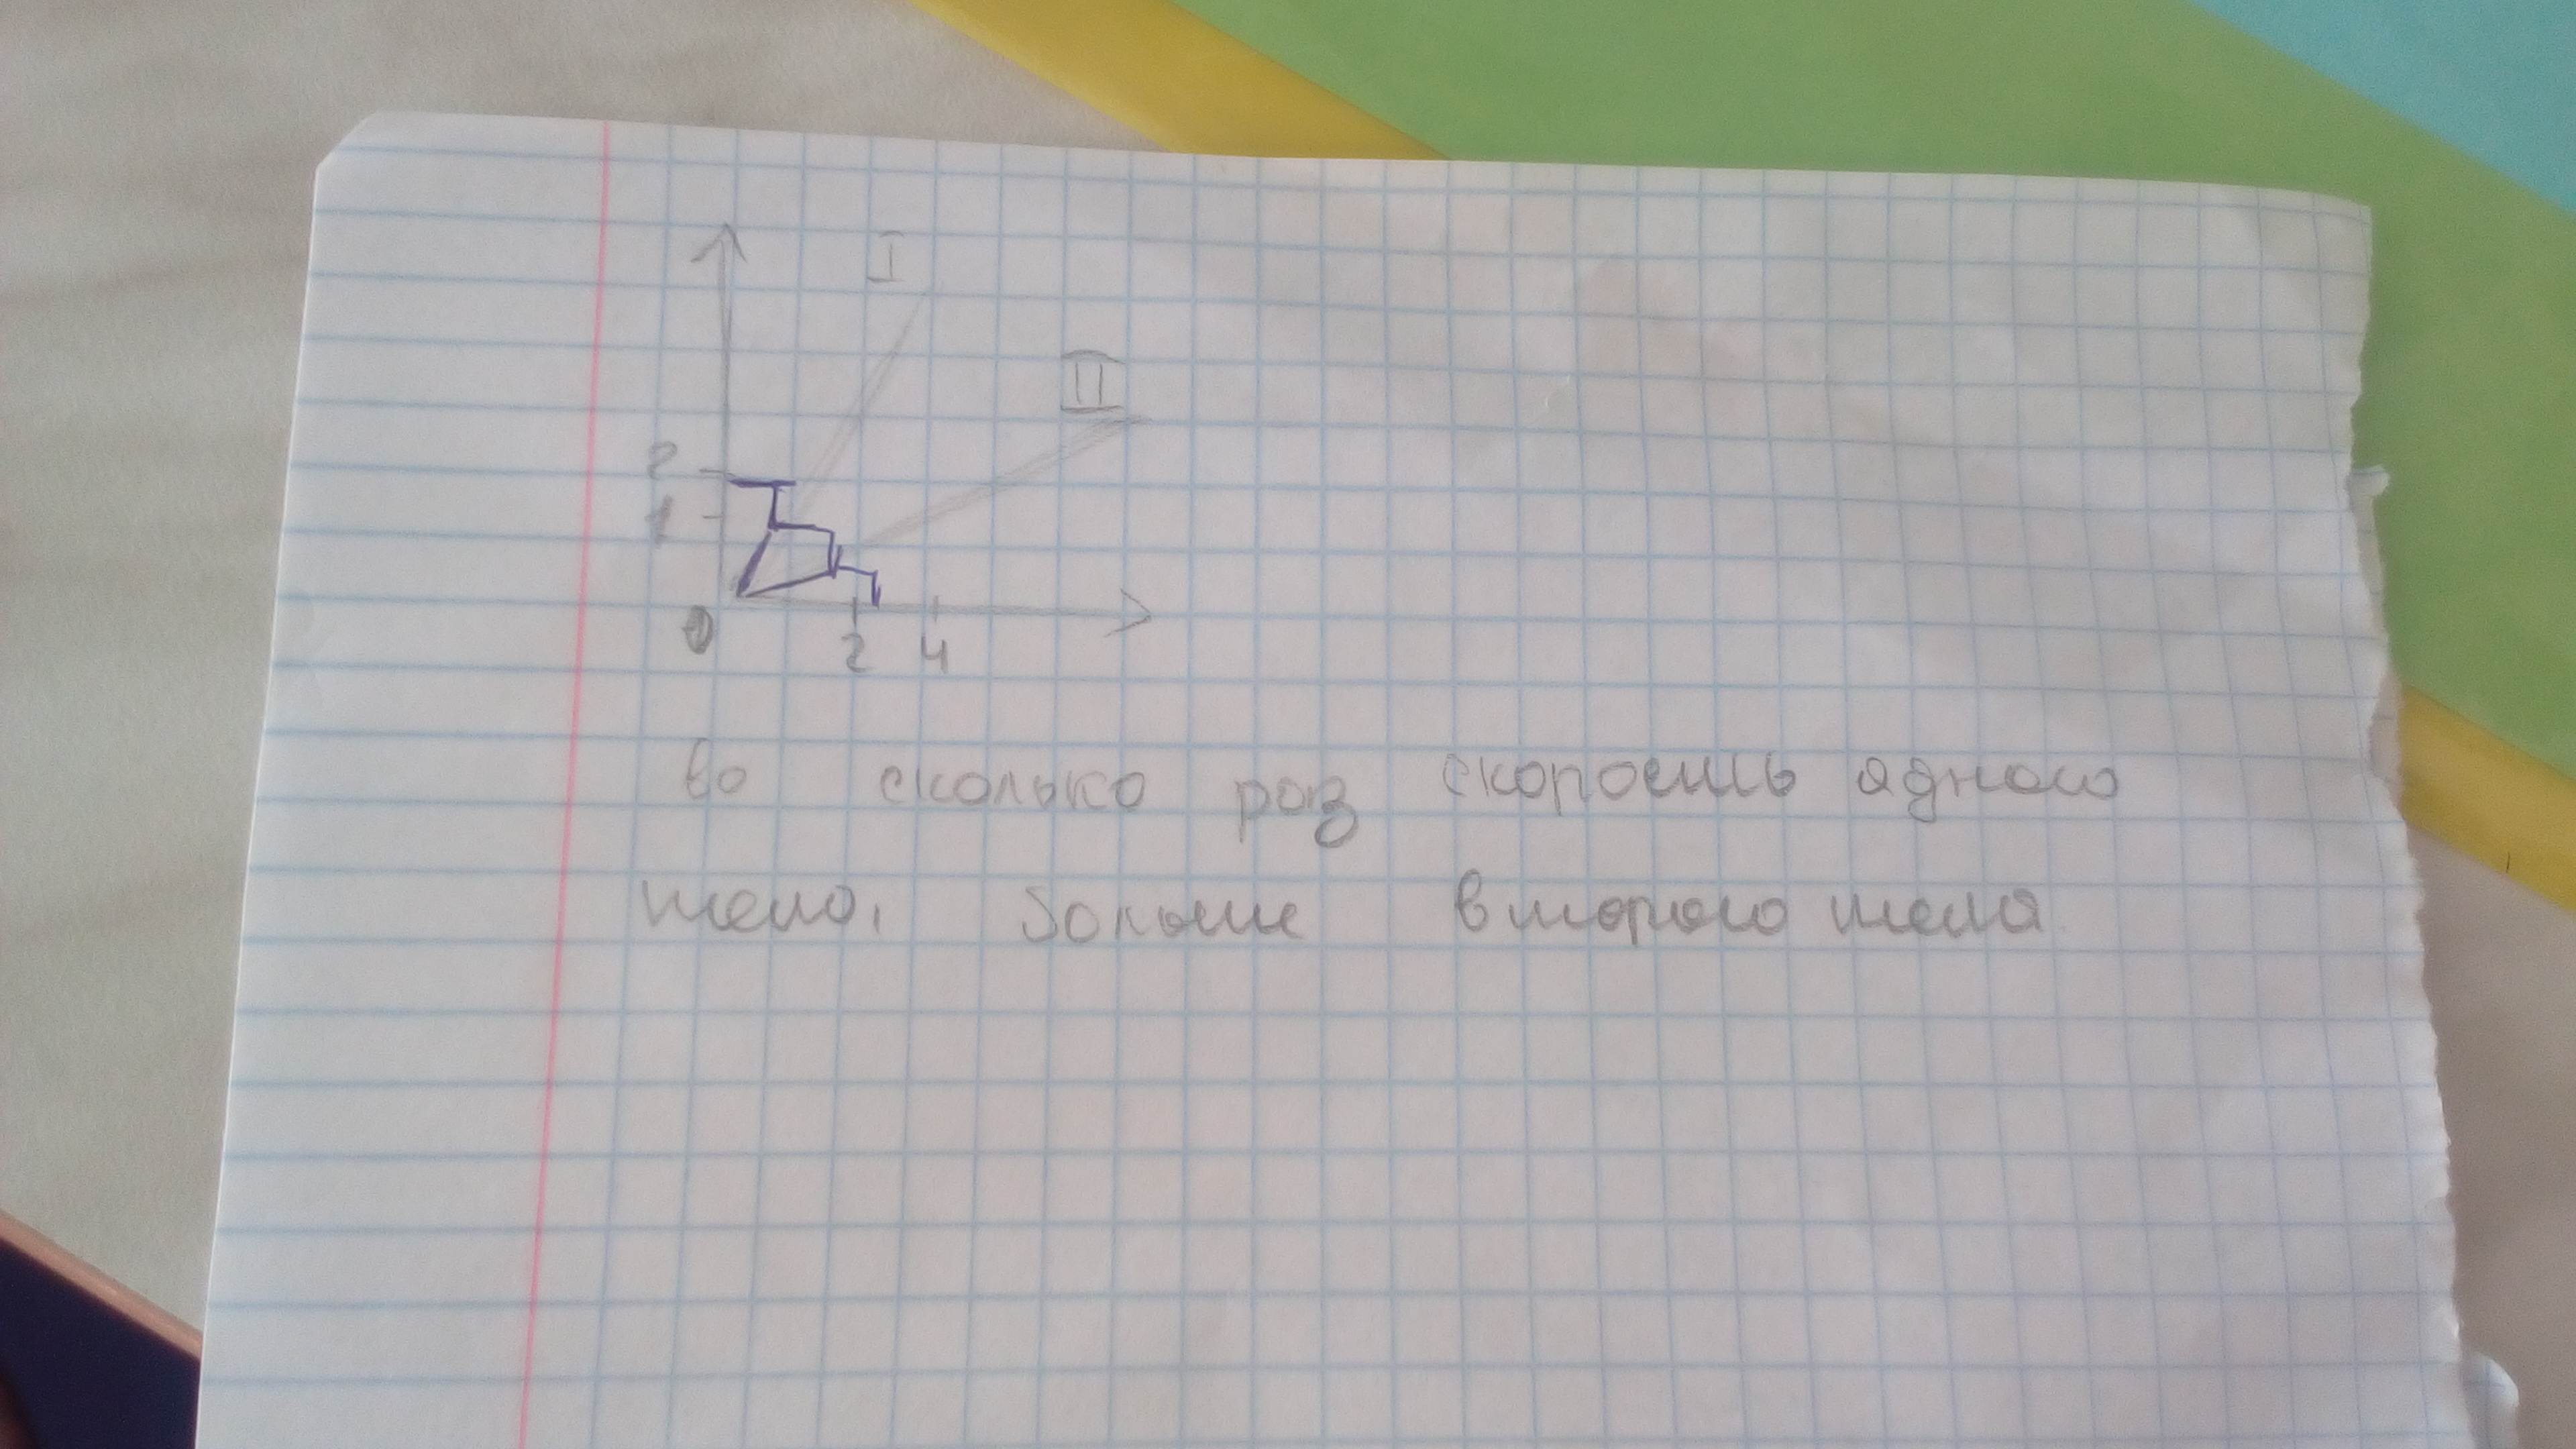 I
II
2
1
0
2 4
во сколько раз скорость одного
тела, больше второго тела